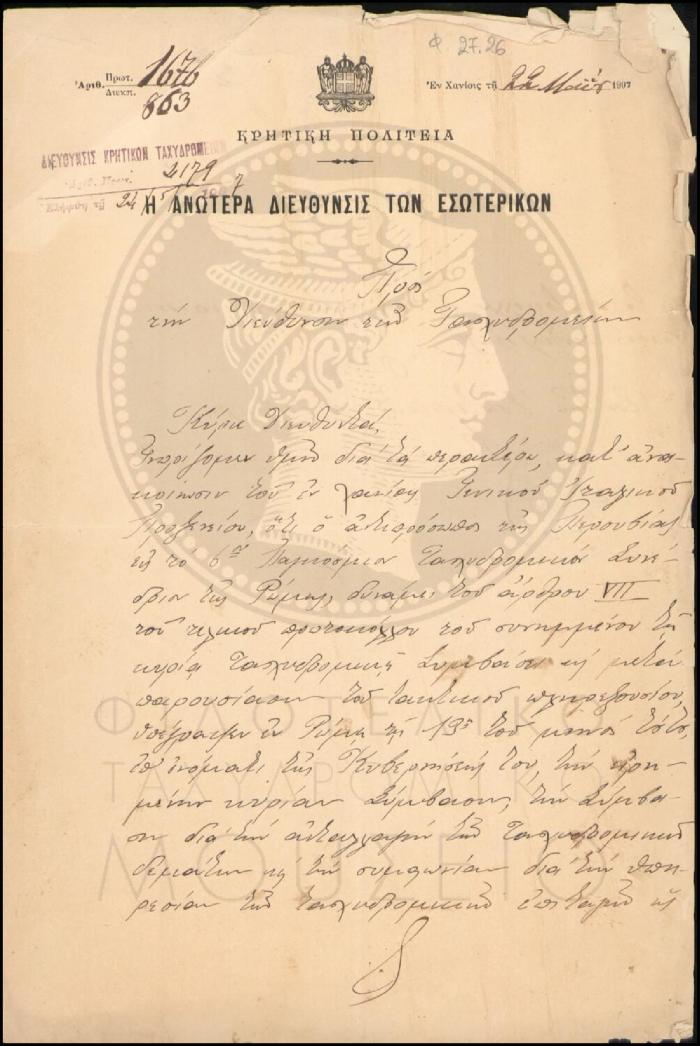 Φ 27.26
Ἀριθ. Πρωτ. 1676
Διεκπ. 863
Ἐν Χανίοις τῇ 22 Μαΐου 1907
ΚΡΗΤΙΚΗ ΠΟΛΙΤΕΙΑ
ΔΙΕΥΘΥΝΣΙΣ ΚΡΗΤΙΚΩΝ ΤΑΧΥΔΡΟΜΕΙΩΝ
Ἀριθ. Πρωτ. 2179
24/5/1907
Η ΑΝΩΤΕΡΑ ΔΙΕΥΘΥΝΣΙΣ ΤΩΝ ΕΣΩΤΕΡΙΚΩΝ
Πρὸς
τὴν Διεύθυνσιν τῶν Ταχυδρομείων
Κύριε Διευθυντά,
Γνωρίζομεν ὑμῖν διὰ τὰ περαιτέρω, κατ' ἀνα-
κοίνωσιν τοῦ ἐν Χανίοις Γενικοῦ Ἰταλικοῦ
Προξενείου, ὅτι ὁ ἀντιπρόσωπος τῆς Περουβίας
εἰς τὸ 6ον Παγκόσμιον Ταχυδρομικὸν Συνέ-
δριον τῆς Ρώμης, δυνάμει τοῦ ἄρθρου VII
τοῦ τελικοῦ πρωτοκόλλου τοῦ συνημμένου τῇ
κυρίᾳ Ταχυδρομικῇ Συμβάσει καὶ μετὰ
παρουσίασιν τοῦ τακτικοῦ πληρεξουσίου,
ὑπέγραψεν ἐν Ρώμῃ τῇ 19ῃ τοῦ μηνὸς
ἐπ' ὀνόματι τῆς Κυβερνήσεώς του, τὴν εἰρη-
μένην κυρίαν Σύμβασιν, τὴν Σύμβα-
σιν διὰ τὴν ἀνταλλαγὴν τῶν Ταχυδρομικῶν
δεμάτων καὶ τὴν συμφωνίαν διὰ τὴν ὑπη-
ρεσίαν τῶν ταχυδρομικῶν ἐπιταγῶν
ΦΙΛΟΤΕΛΙΚΟ
ΤΑΧΥΔΡΟΜΙΚΟ
ΜΟΥΣΕΙΟ